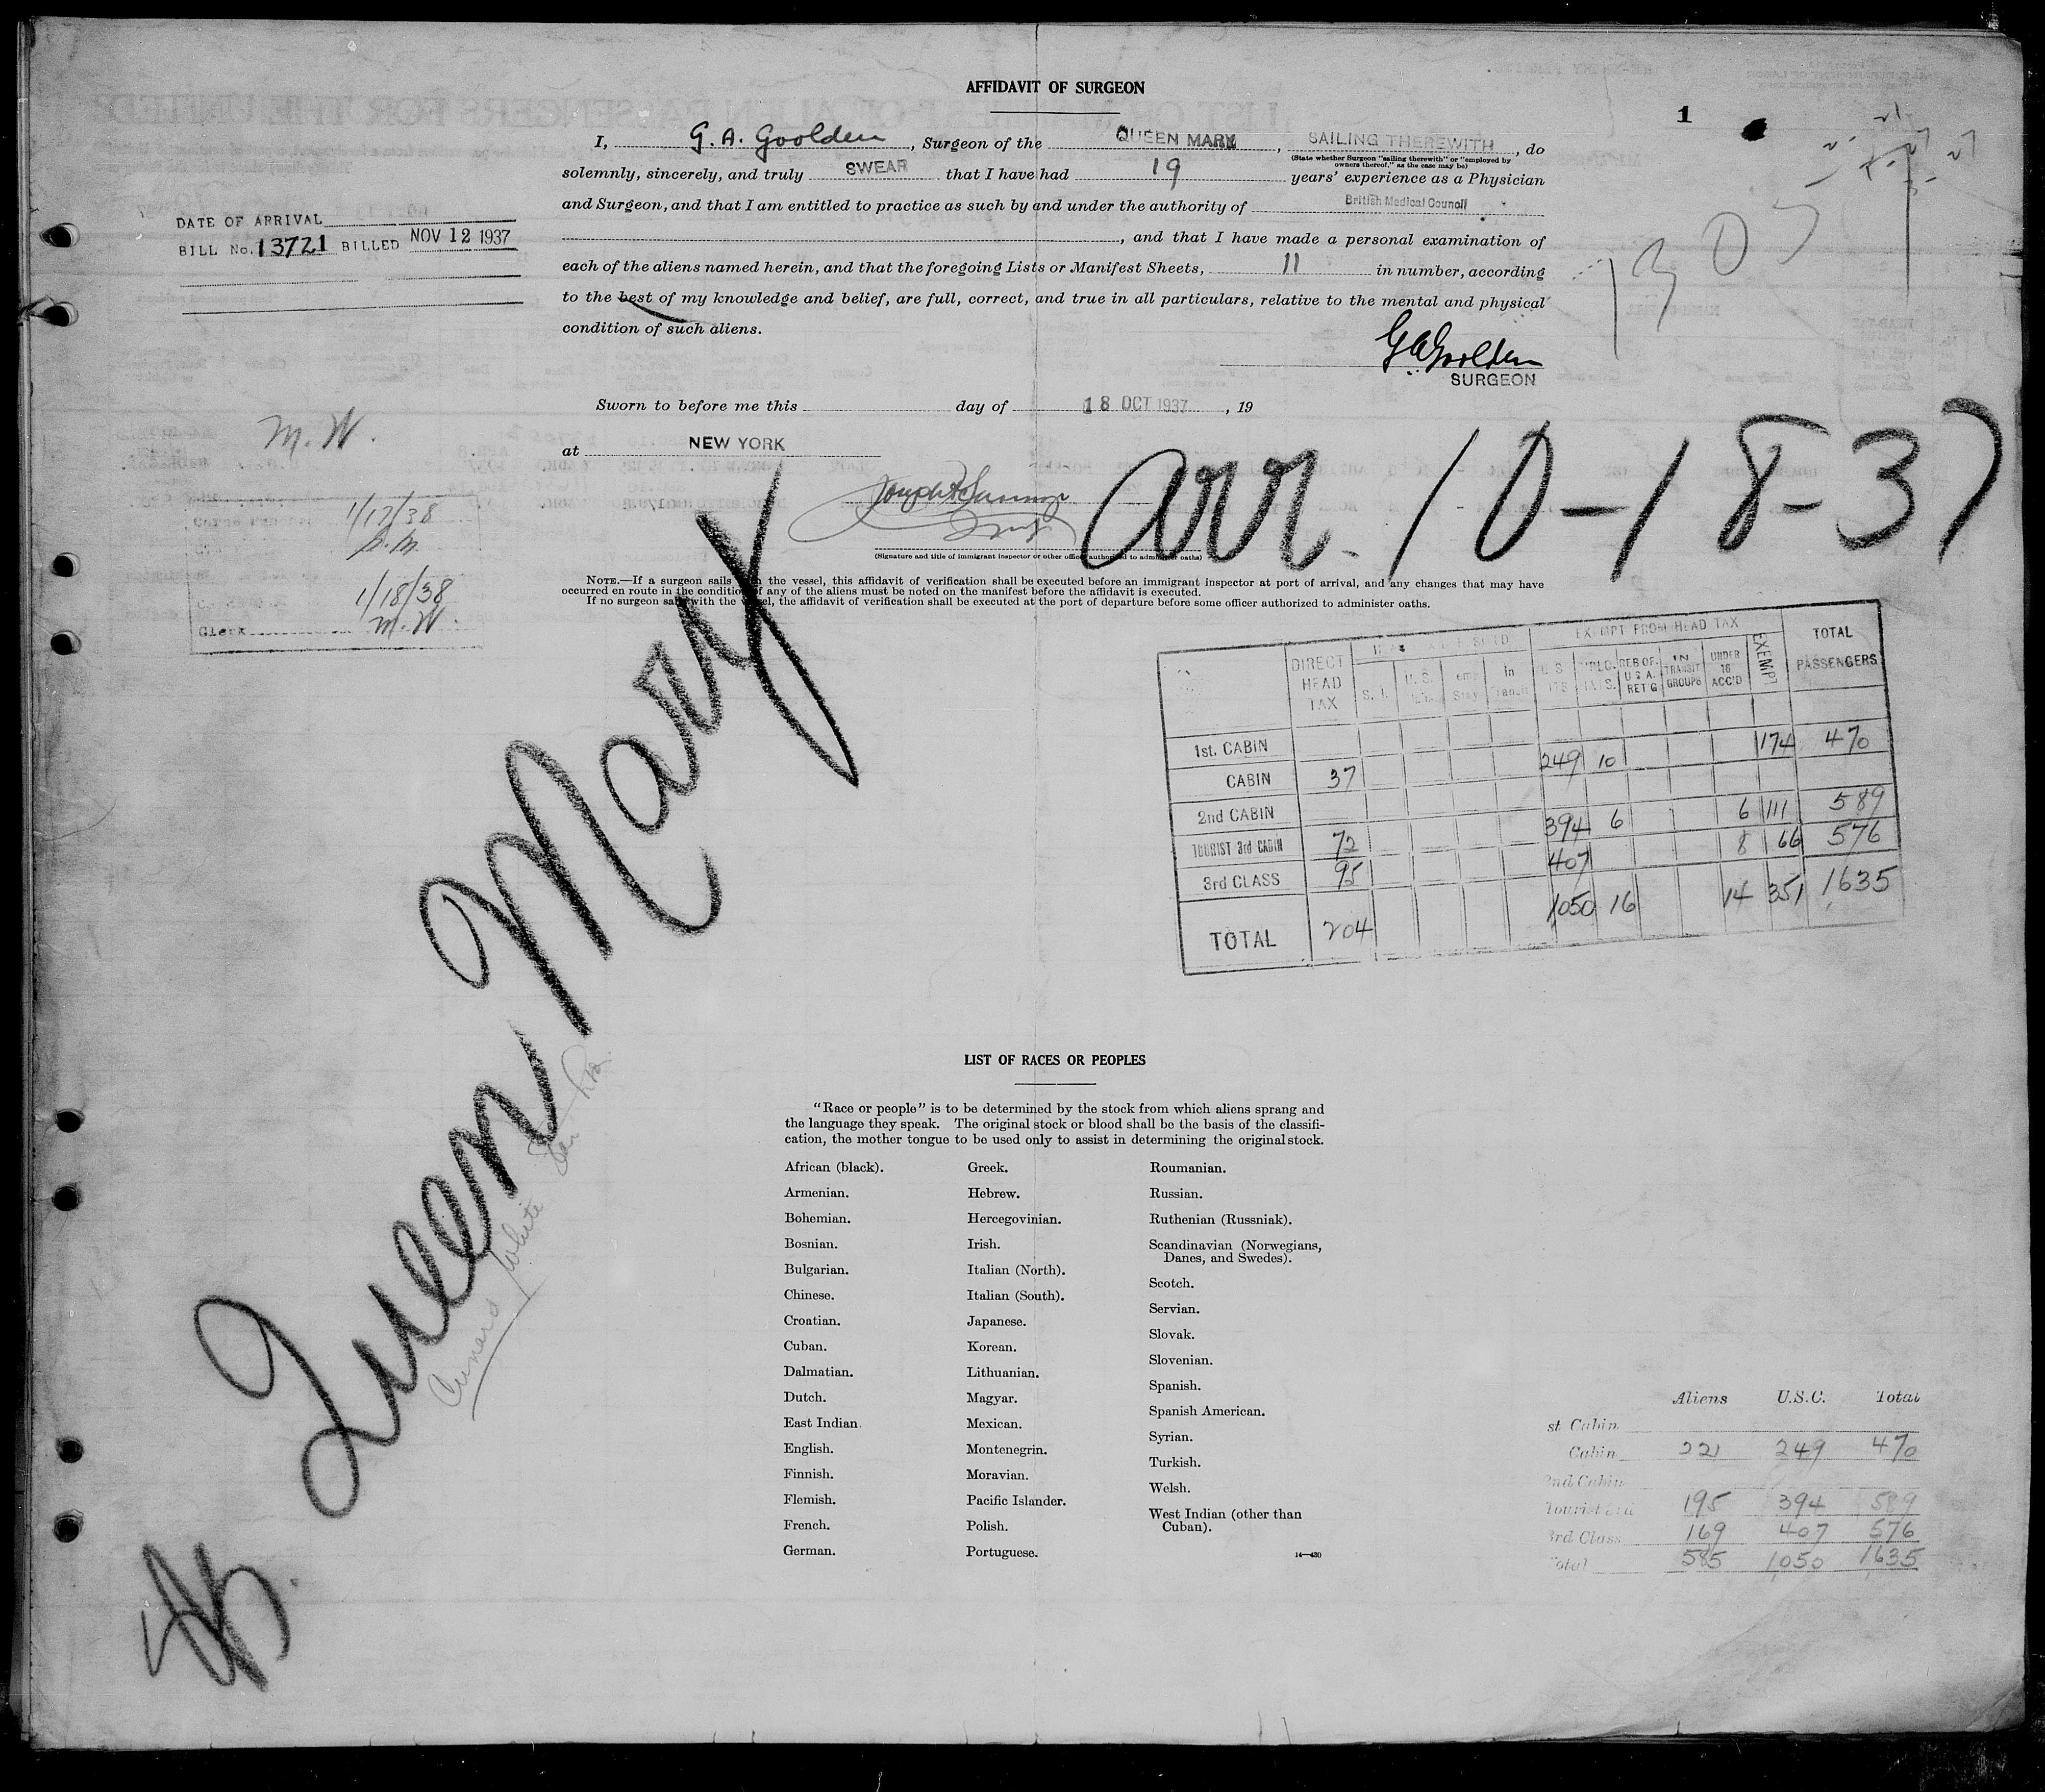 AFFIDAVIT OF SURGEON
1
I, G. A. Goolden, Surgeon of the QUEEN MARY, SAILING THEREWITH, do
(State whether Surgeon "sailing therewith" or "employed by owners thereof," as the case may be)
solemnly, sincerely, and truly SWEAR that I have had 19 years' experience as a Physician
and Surgeon, and that I am entitled to practice as such by and under the authority of British Medical Council
, and that I have made a personal examination of
each of the aliens named herein, and that the foregoing Lists or Manifest Sheets, 11 in number, according
to the best of my knowledge and belief, are full, correct, and true in all particulars, relative to the mental and physical
condition of such aliens.
DATE OF ARRIVAL
BILL No. 13721 BILLED NOV 12 1937
G A Goolden
SURGEON
Sworn to before me this day of 18 OCT 1937, 19
at NEW YORK
arr. 10-18-37
(Signature and title of immigrant inspector or other officer authorized to administer oaths)
M. W.
1/17/38
1/18/38
Clerk M. W.
NOTE.—If a surgeon sails with the vessel, this affidavit of verification shall be executed before an immigrant inspector at port of arrival, and any changes that may have
occurred en route in the condition of any of the aliens must be noted on the manifest before the affidavit is executed.
If no surgeon sails with the vessel, the affidavit of verification shall be executed at the port of departure before some officer authorized to administer oaths.
Queen Mary
Cunard White Star
DIRECT HEAD TAX S. I. U. S. in EXEMPT FROM HEAD TAX U. S. IN TRANSIT GROUPS UNDER 16 ACC'D EXEMPT TOTAL PASSENGERS
1st. CABIN
CABIN 37 249 10 174 470
2nd CABIN
TOURIST 3rd CABIN 72 394 6 6 111 589
3rd CLASS 95 407 8 66 576
TOTAL 204 1050 16 14 351 1635
LIST OF RACES OR PEOPLES
"Race or people" is to be determined by the stock from which aliens sprang and
the language they speak. The original stock or blood shall be the basis of the classifi-
cation, the mother tongue to be used only to assist in determining the original stock.
African (black).
Armenian.
Bohemian.
Bosnian.
Bulgarian.
Chinese.
Croatian.
Cuban.
Dalmatian.
Dutch.
East Indian.
English.
Finnish.
Flemish.
French.
German.
Greek.
Hebrew.
Hercegovinian.
Irish.
Italian (North).
Italian (South).
Japanese.
Korean.
Lithuanian.
Magyar.
Mexican.
Montenegrin.
Moravian.
Pacific Islander.
Polish.
Portuguese.
Roumanian.
Russian.
Ruthenian (Russniak).
Scandinavian (Norwegians,
Danes, and Swedes).
Scotch.
Servian.
Slovak.
Slovenian.
Spanish.
Spanish American.
Syrian.
Turkish.
Welsh.
West Indian (other than
Cuban).
14—430
Aliens U.S.C. Total
st Cabin
Cabin 221 249 470
2nd Cabin
Tourist 3rd 195 394 589
3rd Class 169 407 576
Total 585 1050 1635